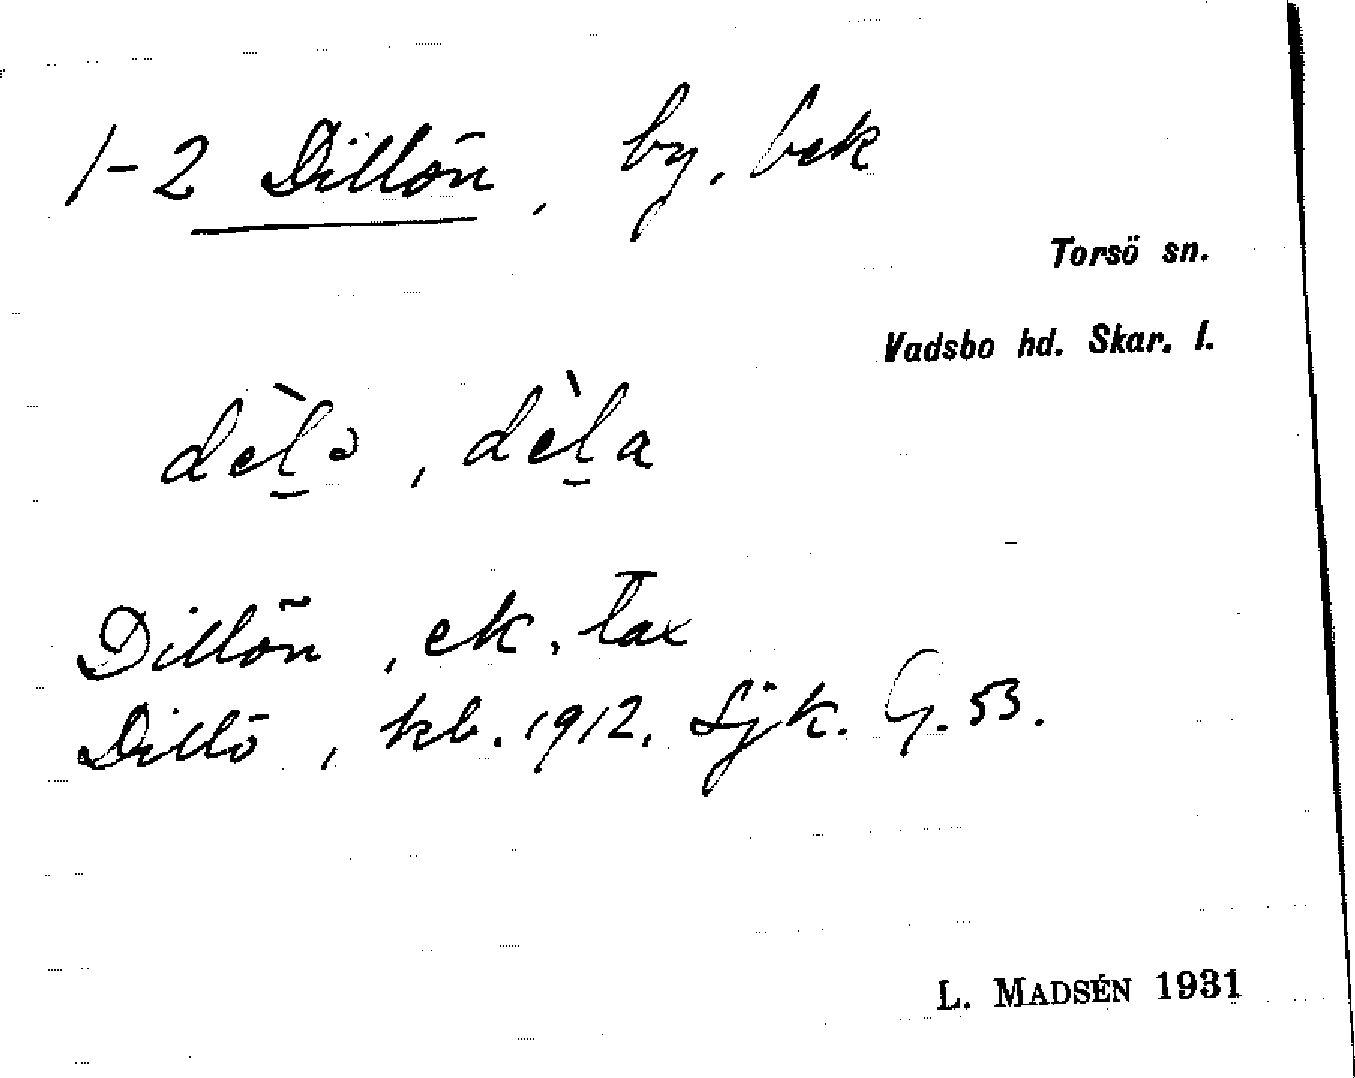 1-2 Dillön, by, bek
Torsö sn.
Vadsbo hd. Skar. l.
dèl̠ə, dèl̠a
Dillön, ek, Tax
Dillö, kb. 1912. Sjk. G. 53.
L. MADSÉN 1931